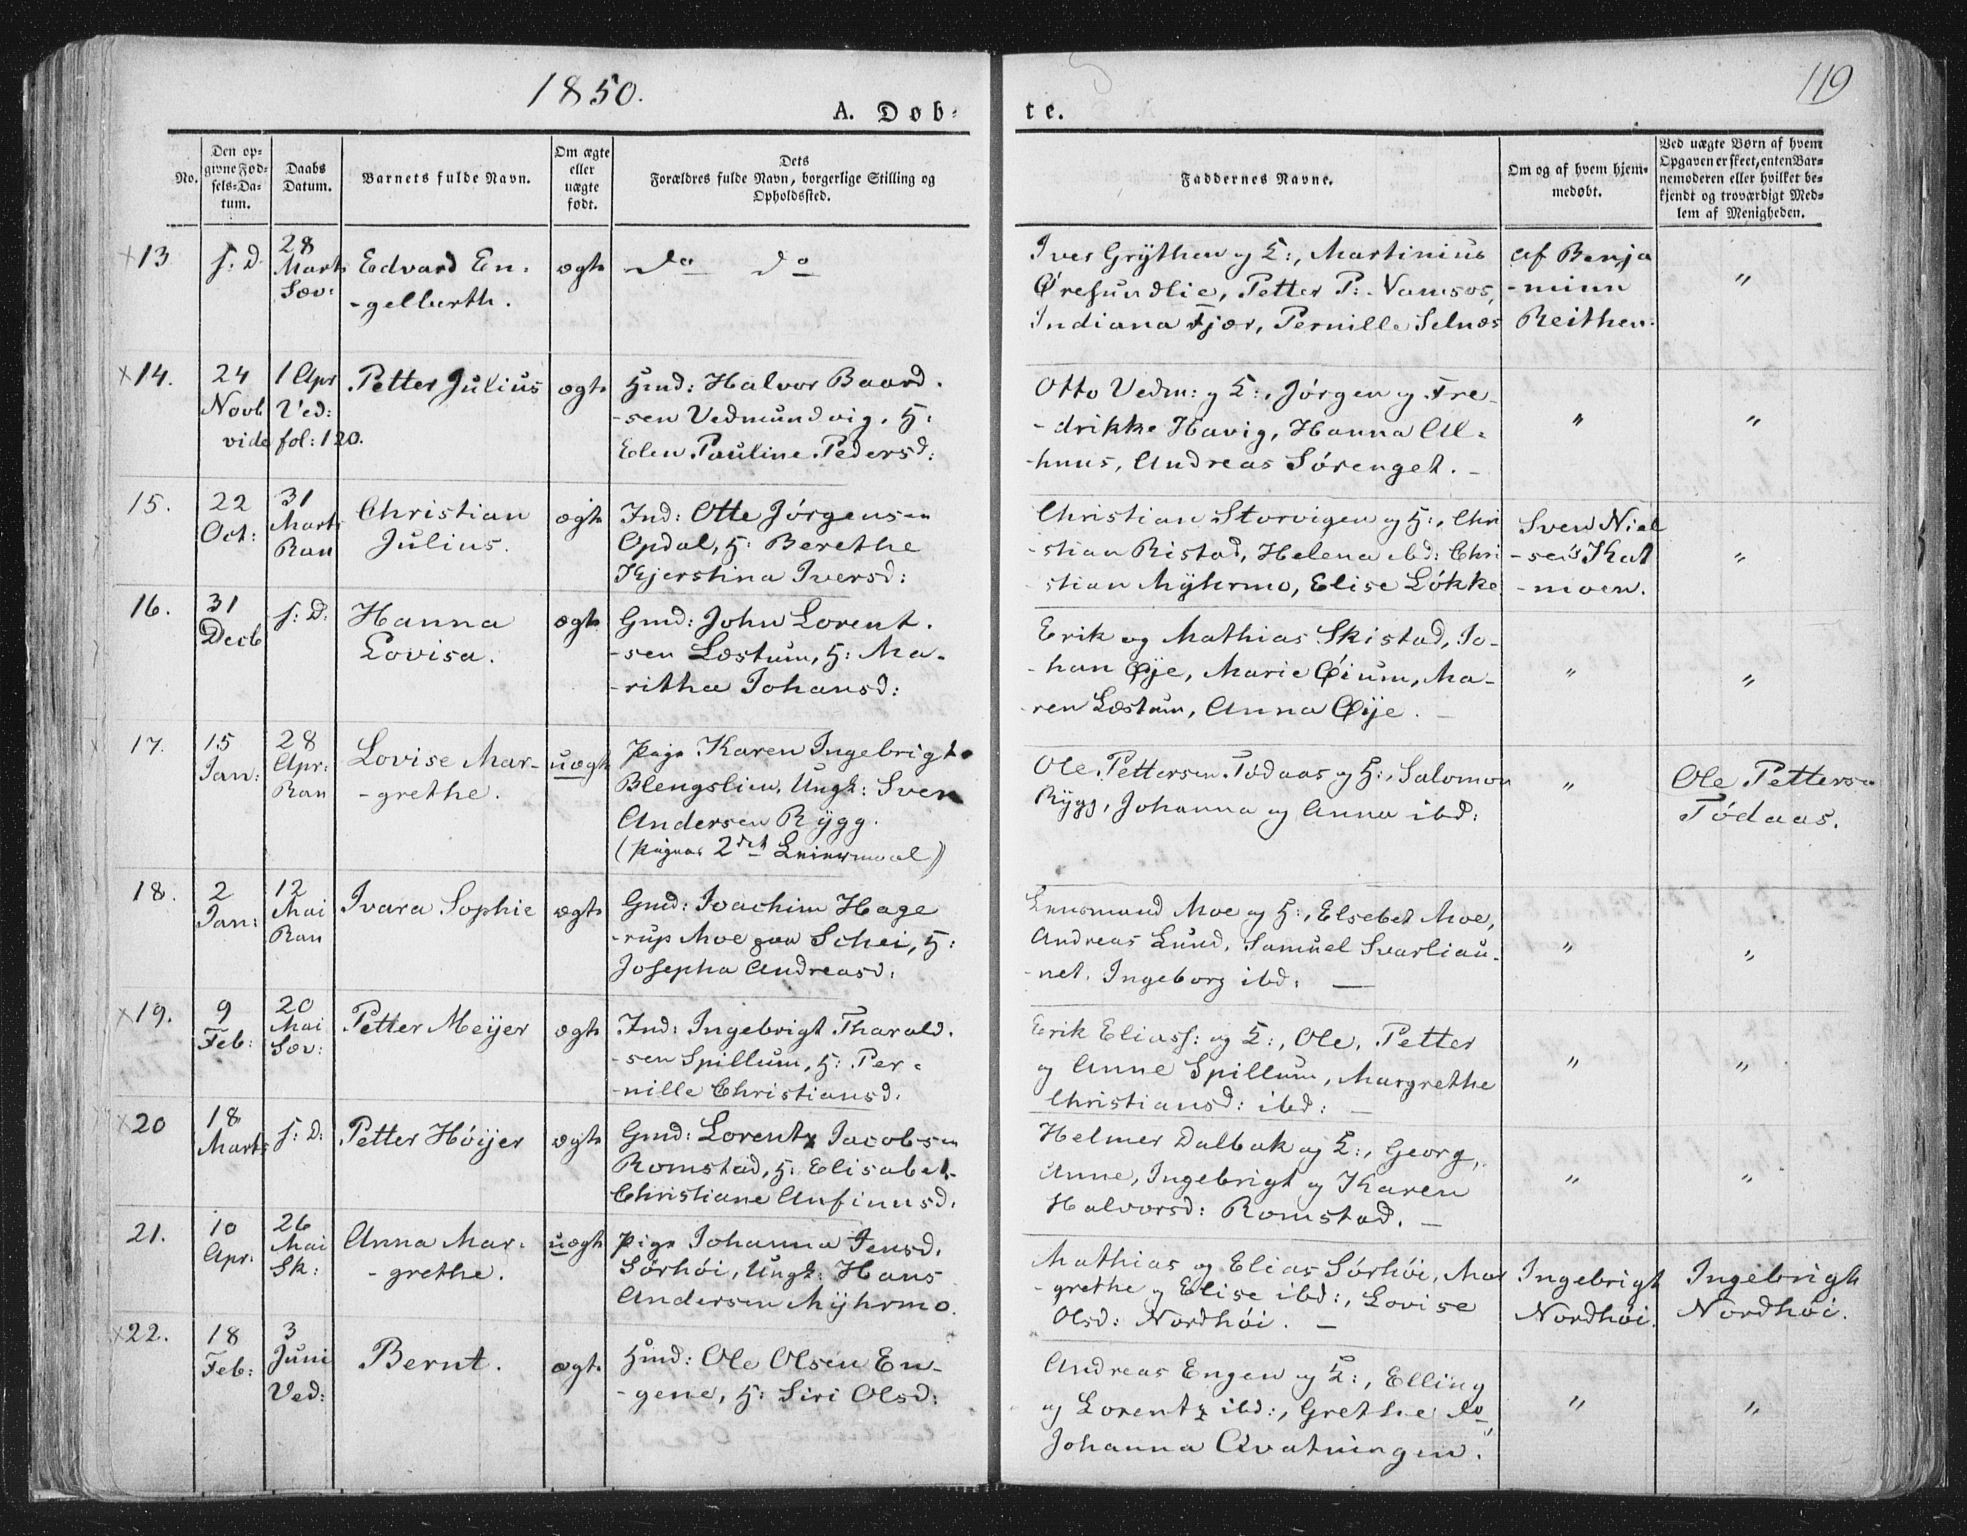 1850.
119
A. Døb-
te.
No.
Den op-
givne Fød-
sels-Da-
tum.
Daabs
Datum.
Barnets fulde Navn.
Om ægte
eller
uægte
født.
Dets
Forældres fulde Navn, borgerlige Stilling og
Opholdssted.
Faddernes Navne.
Om og af hvem hjem-
medøbt.
Ved uægte Børn af hvem
Opgaven er skeet, enten Bar-
nemoderen eller hvilket be-
kjendt og troværdigt Med-
lem af Menigheden.
×13
s: D
28
Marts
Sæv:
Edvard En-
-gelberth.
ægte
Do Do
Iver Grÿthen og H:, Martinius
Øresundlie, Petter P: Namsos,
Indiana Fjær, Pernille Selnæs
af Benja
-minn
Reithen.
"
×14.
24
Novb
1 Apr
Ved:
vide fol: 120.
Petter Julius
ægte
Hmd: Halvor Baard-
-sen Vedmundvig, H:
Elen Pauline Pedersd:
Otto Vedm: og H:, Jørgen og Fre-
-drikke Havig, Hanna Al-
-huus, Andreas Sørenget. –
"
"
15.
22
Oct:
31
Marts
Ran
Christian
Julius.
ægte
Ind: Otte Jørgensen
Opdal, H: Berethe
Kjerstina Iversd:
Christian Storvigen og H:, Chri
-stian Ristad, Helena ibd: Chri
-stian Mÿhrmo, Elise Løkke
Sven Niel
-sen Kat
-moen.
"
16.
31
Decb
s: D:
Hanna
Lovisa.
ægte
Gmd: John Lorent-
-sen Læstum, H: Ma-
-ritha Johansd:
Erik og Mathias Skistad, Jo-
-han Øÿe, Marie Øium, Ma-
-ren Læstum, Anna Øÿe. –
"
"
17.
15
Jan:
28
Apr:
Ran
Lovise Mar-
-grethe.
uægte
Pige Karen Ingebrigts
Blengslien, Ungk: Sven
Andersen Rÿgg.
(Pigens 2det Leiermaal)
Ole Pettersen Tødaas og H:, Salomon
Rÿgg, Johanna og Anna ibd:
"
Ole Petterse
Tødaas.
18.
2
Jan:
12
Mai
Ran
Ivara Sophie
ægte
Gmd: Joachim Hage
-rup Moe paa Schei, H:
Josepha Andreasd:
Lensmand Moe og H:, Elsebet Moe,
Andreas Lund, Samuel Svarliau-
-net, Ingeborg ibd: –
"
"
×19.
9
Feb:
20
Mai
Sæv:
Petter Meÿer
ægte
Ind: Ingebrigt Tharald-
-sen Spillum, H: Per-
-nille Christiansd:
Erik Eliass: og H:, Ole, Petter
og Anne Spillum, Margrethe
Christiansd: ibd: –
"
"
×20
18
Marts
s: D:
Petter Høÿer
ægte
Gmd: Lorentz Jacobsen
Romstad, H: Elisabet
Christiane Anfinnsd:
Helmer Dalbak og H:, Georg,
Anne, Ingebrigt og Karen
Halvorsd: Romstad. –
"
"
21.
10
Apr:
26
Mai
Sk:
Anna Mar-
-grethe.
uægte
Pige Johanna Jensd:
Sørhøi, Ungk: Hans
Andersen Mÿhrmo.
Mathias og Elias Sørhøi, Mar
-grethe og Elise ibd:, Lovise
Olsd: Nordhøi. –
Ingebrigt
Nordhøi.
Ingebrigt
Nordhøi.
×22.
18
Feb:
3
Juni
Ved:
Bernt.
ægte
Hmd: Ole Olsen En-
-gene, H: Siri Olsd:
Andreas Engen og H:, Elling
og Lorentz ibd:, Grethe do
Johanna Qvatningen.
"
"